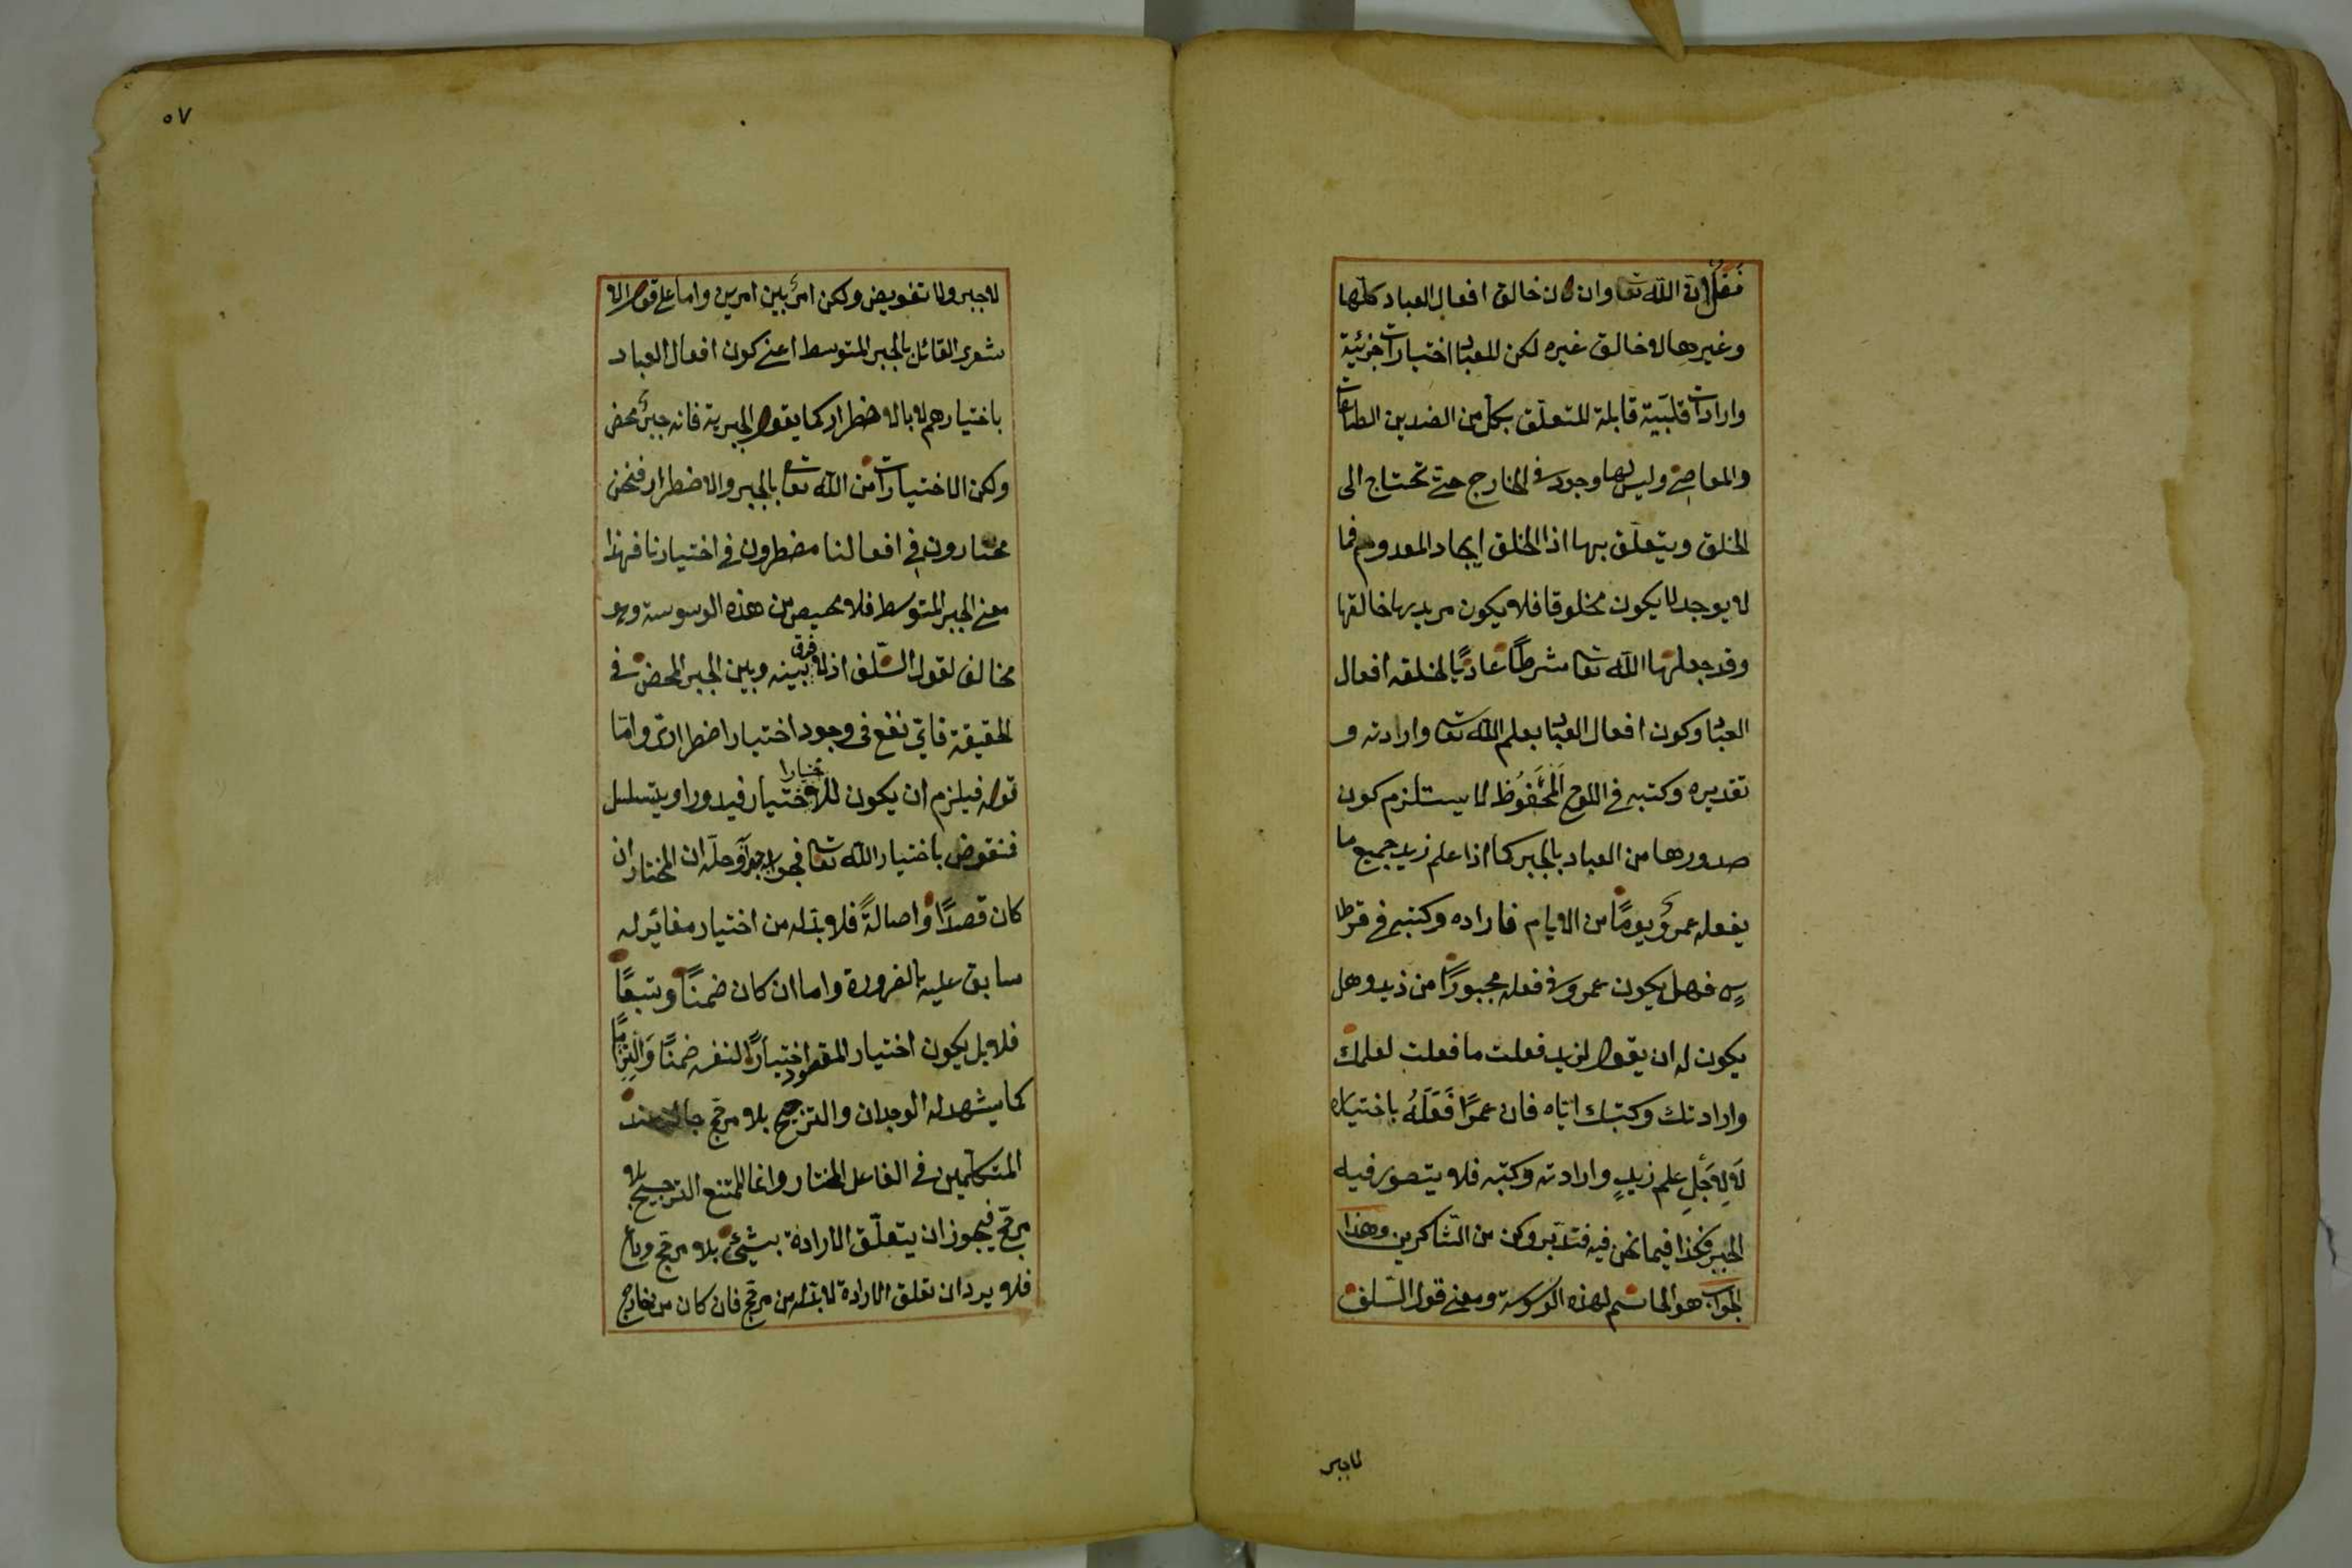 فقل ان الله تعا وان كان خالق افعال العباد كلها
وغيرها لا خالق غيره لكن للعباد اختيارات جزئية
وارادات قلبية قابلة للتعلق بكل من الضدين الطاعات
والمعاصى وليس لها وجود فى الخارج حتى تحتاج الى
الخلق ويتعلق بها اذ الخلق ايجاد المعدوم فما
لا يوجد لا يكون مخلوقا فلا يكون مريدها خالقها
وقد جعلها الله تعا شرطاً عادياً لخلقه افعال
العباد وكون افعال العباد بعلم الله تعا وارادته و
تقديره وكتبه فى اللوح المَحْفُوظ لا يستلزم كون
صدورها من العباد بالجبر كما اذا علم زيد جميع ما
يفعله عمرو يوماً من الايام فاراده وكتبه فى قرطا
س فهل يكون عمرو فى فعله مجبوراً من زيد وهل
يكون له ان يقول لزيد فعلت ما فعلت لعلمك
وارادتك وكتبك اياه فان عمرًا فَعَلَهُ باختياره
لا لِاَجْلِ علم زيدٍ وارادته وكتبه فلا يتصور فيه
الجبر فكذا فيما نحن فيه فتدبر وكن من الشاكرين وهذا
الجواب هو الحاسم لهذه الوسوسة ومعنى قول السلف
لا جبر
٥٧
لا جبر ولا تفويض ولكن امرٌ بين امرين واما على قول الا
شعرى القائل بالجبر المتوسط اعنى كون افعال العباد
باختيارهم لا بالاضطرار كما يقول الجبرية فانه جبرٌ محض
ولكن الاختيارات من الله تعا بالجبر والاضطرار فنحن
مختارون فى افعالنا مضطرون فى اختيارنا فهذا
معنى الجبر المتوسط فلا محيص من هذه الوسوسة وهو
مخالف لقول السلف اذ لا فرق بينه وبين الجبر المحض فى
الحقيقة فاى نفع فى وجود اختيار اضطرارى واما
قوله فيلزم ان يكون للاختيار اختيارا فيدور او يتسلسل
فنقوض باختيار الله تعا فجوابه جوابه وحله ان المختار ان
كان قصداً واصالةً فلا بد له من اختيار مغاير له
سابق عليه بالضرورة واما ان كان ضمناً وتبعاً
فلا بل يكون اختيار المقصود اختياراً لنفسه ضمناً والتزاماً
كما يشهد له الوجدان والترجيح بلا مرجح جائز عند
المتكلمين فى الفاعل المختار وانما الممتنع الترجيح بلا
مرجح فيجوز ان يتعلق الارادة بشئ بلا مرجح وداع
فلا يرد ان تعلق الارادة لا بد له من مرجح فان كان من خارج